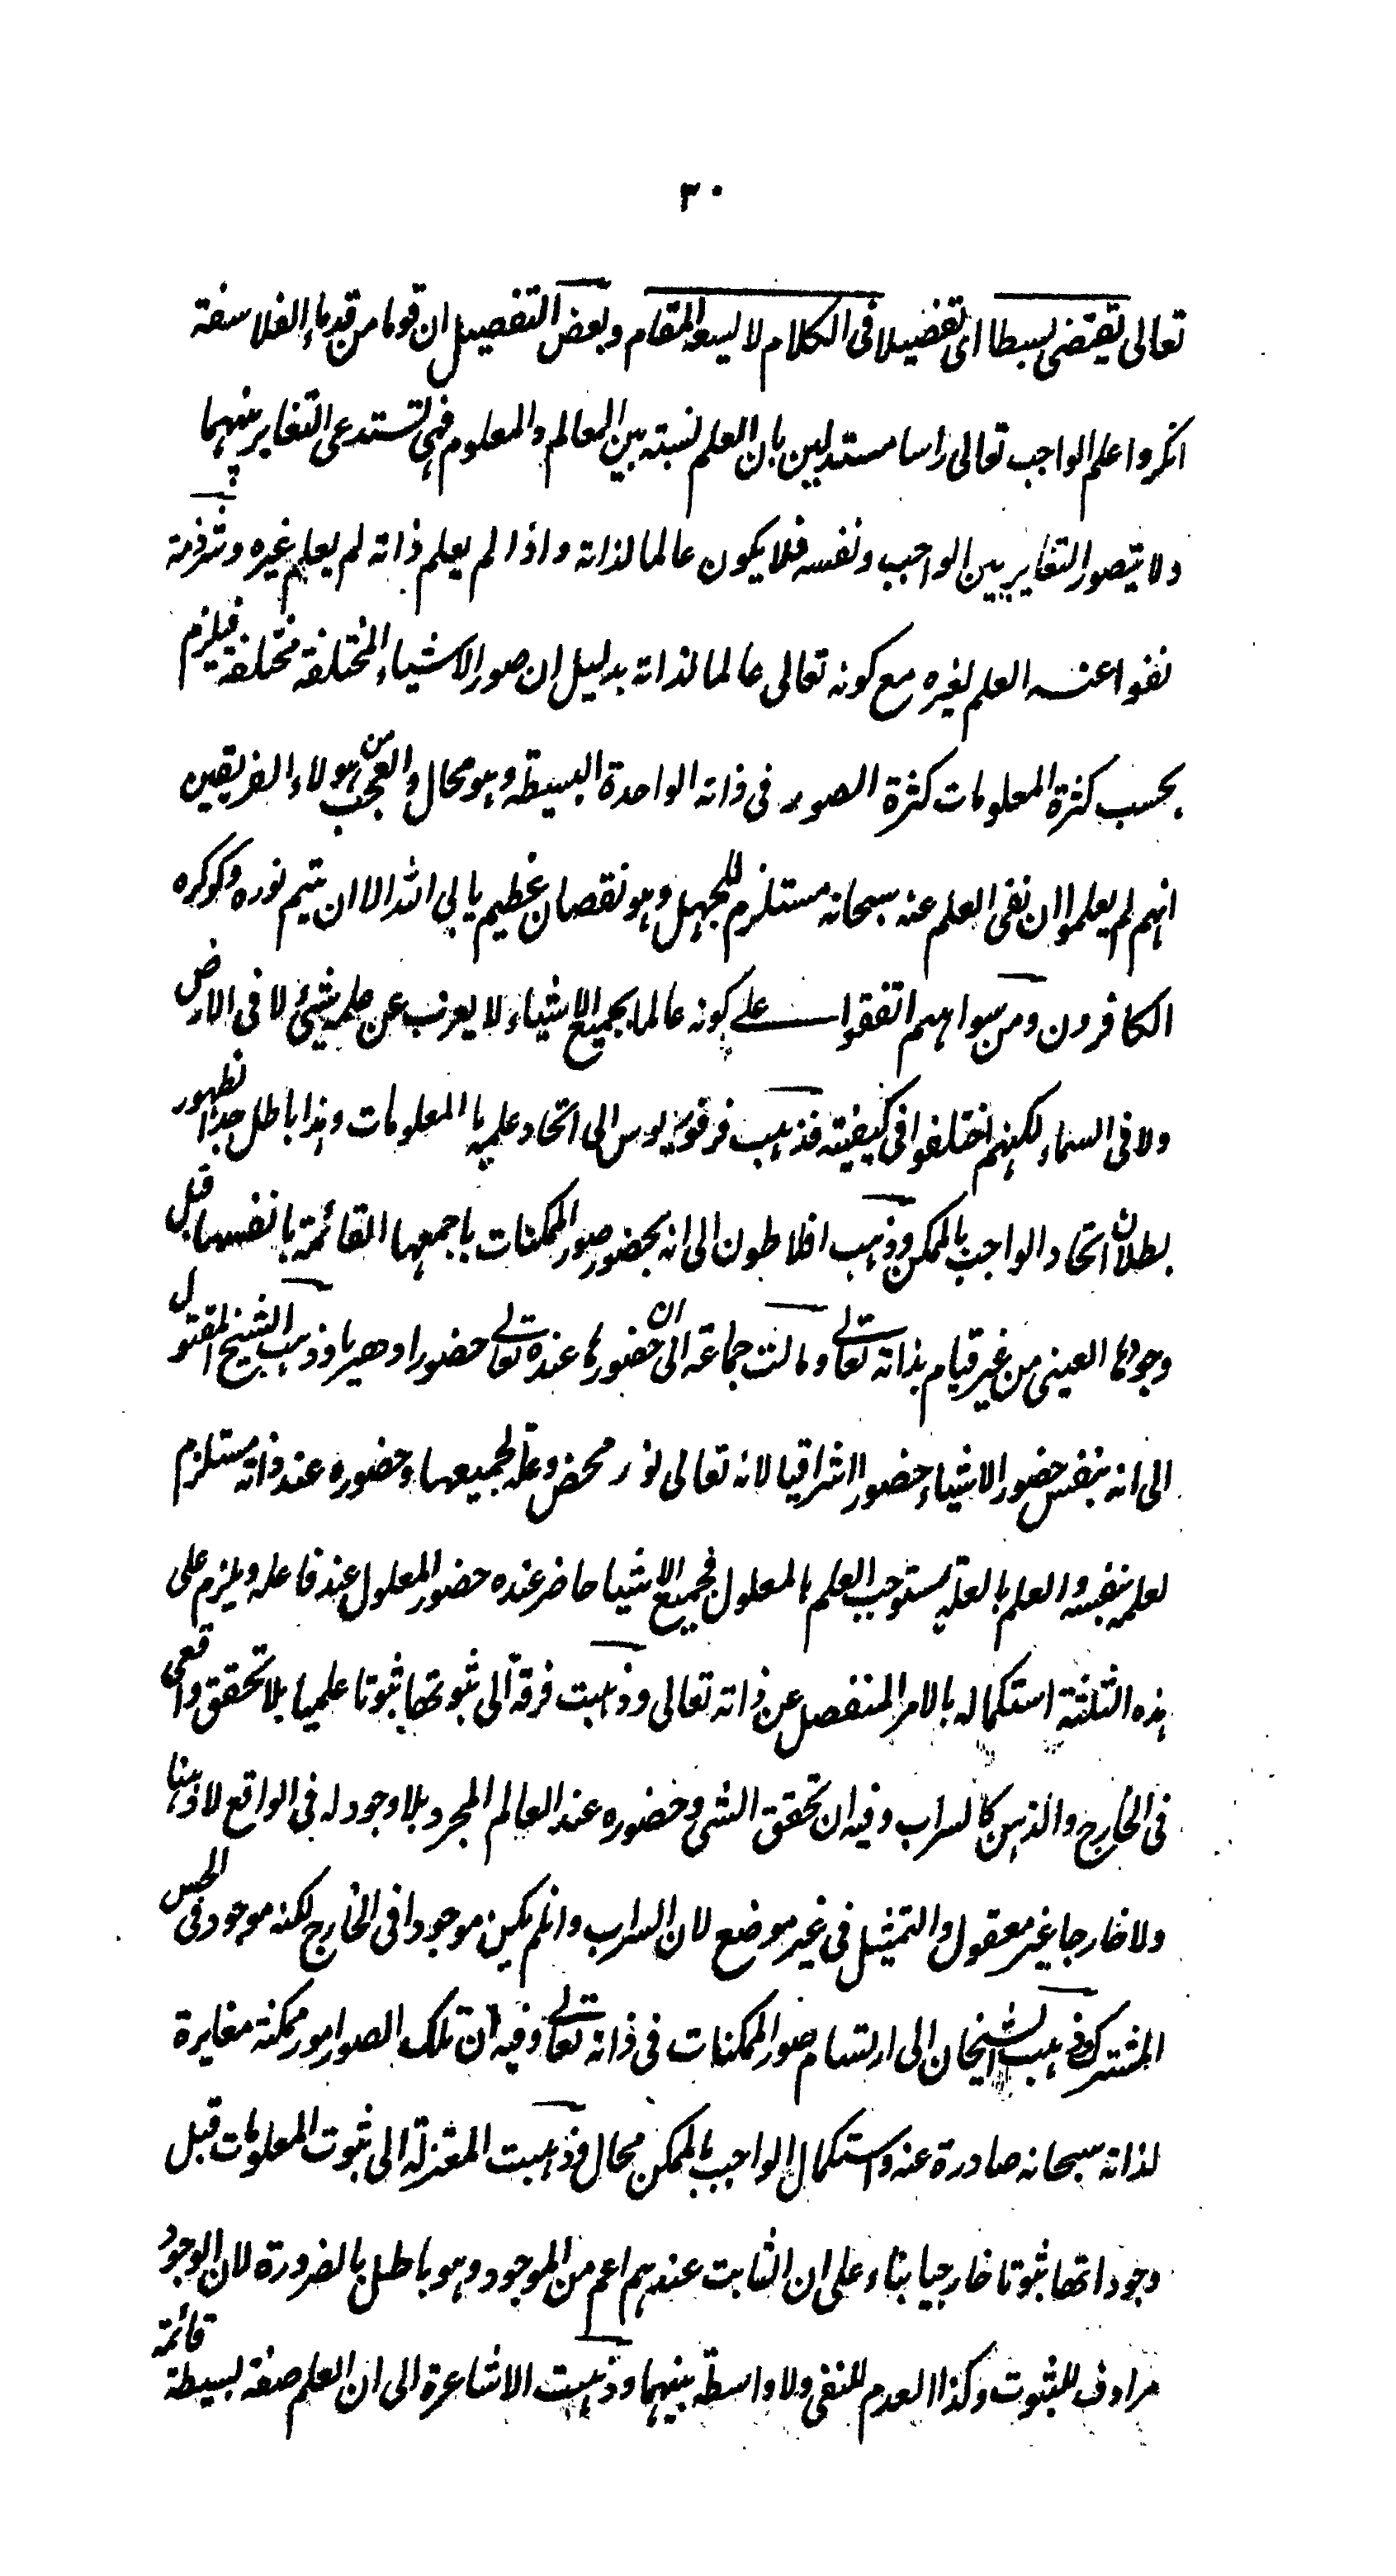 ٣٠
تعالى يقتضى بسطا اى تفضيلا فى الكلام لا يسعه المقام وبعض التفصيل ان قوما من قدماء الفلاسفة
انكروا علم الواجب تعالى راسا مستدلين بان العلم نسبته بين العالم والمعلوم فهى تستدعى التغاير بينهما
ولا يتصور التغاير بين الواجب ونفسه فلا يكون عالما لذاته واذا لم يعلم ذاته لم يعلم غيره وشرذمة
نفوا عنه العلم لغيره مع كونه تعالى عالما لذاته بدليل ان صور الاشياء المختلفة مختلفة فيلزم
بحسب كثرة المعلومات كثرة الصور فى ذاته الواحدة البسيطة وهو محال والعجب من هولاء الفريقين
انهم لم يعلموا ان نفى العلم عنه سبحانه مستلزم للجهل وهو نقصان عظيم يابى الله الا ان يتم نوره ولو كره
الكافرون ومن سواهم اتفقوا على كونه عالما بجميع الاشياء لا يعزب عن علمه شيئ لا فى الارض
ولا فى السماء لكنهم اختلفوا فى كيفيته فذهب فرفوريوس الى اتحاد علمه بالمعلومات وهذا باطل جدا لظهور
بطلان اتحاد الواجب بالممكن وذهب افلاطون الى انه بحضور صور الممكنات باجمعها القائمة بانفسها قبل
وجودها العينى من غير قيام بذاته تعالى ومالت جماعة الى ان حضورها عنده تعالى حضورا دهريا وذهب الشيخ المقتول
الى انه بنفس حضور الاشياء حضورا اشراقيا لانه تعالى نور محض وعلة لجميعها وحضوره عند ذاته مستلزم
لعلمه بنفسه والعلم بالعلة يستوجب العلم بالمعلول فجميع الاشيا حاضر عنده حضور المعلول عند فاعله ويلزم على
هذه الثلثة استكماله بالامر المنفصل عن ذاته تعالى وذهبت فرقة الى ثبوتها ثبوتا علميا بلا تحقق واقعى
فى الخارج والذهن كالسراب وفيه ان تحقق الشى وحضوره عند العالم المجرد بلا وجود له فى الواقع لا ذهنا
ولا خارجا غير معقول والتمثيل فى غير موضع لان السراب وانلم يكن موجودا فى الخارج لكنه موجود فى الحس
المشترك وذهب الشيخان الى ارتسام صور الممكنات فى ذاته تعالى وفيه ان تلك الصور امور ممكنة مغايرة
لذاته سبحانه صادرة عنه واستكمال الواجب بالممكن محال وذهبت المعتزلة الى ثبوت المعلومات قبل
وجوداتها ثبوتا خارجيا بناء على ان الثابت عندهم اعم من الموجود وهو باطل بالضرورة لان الوجود
مرادف للثبوت وكذا العدم للنفى ولا واسطة بينهما وذهبت الاشاعرة الى ان العلم صفة بسيطة قائمة